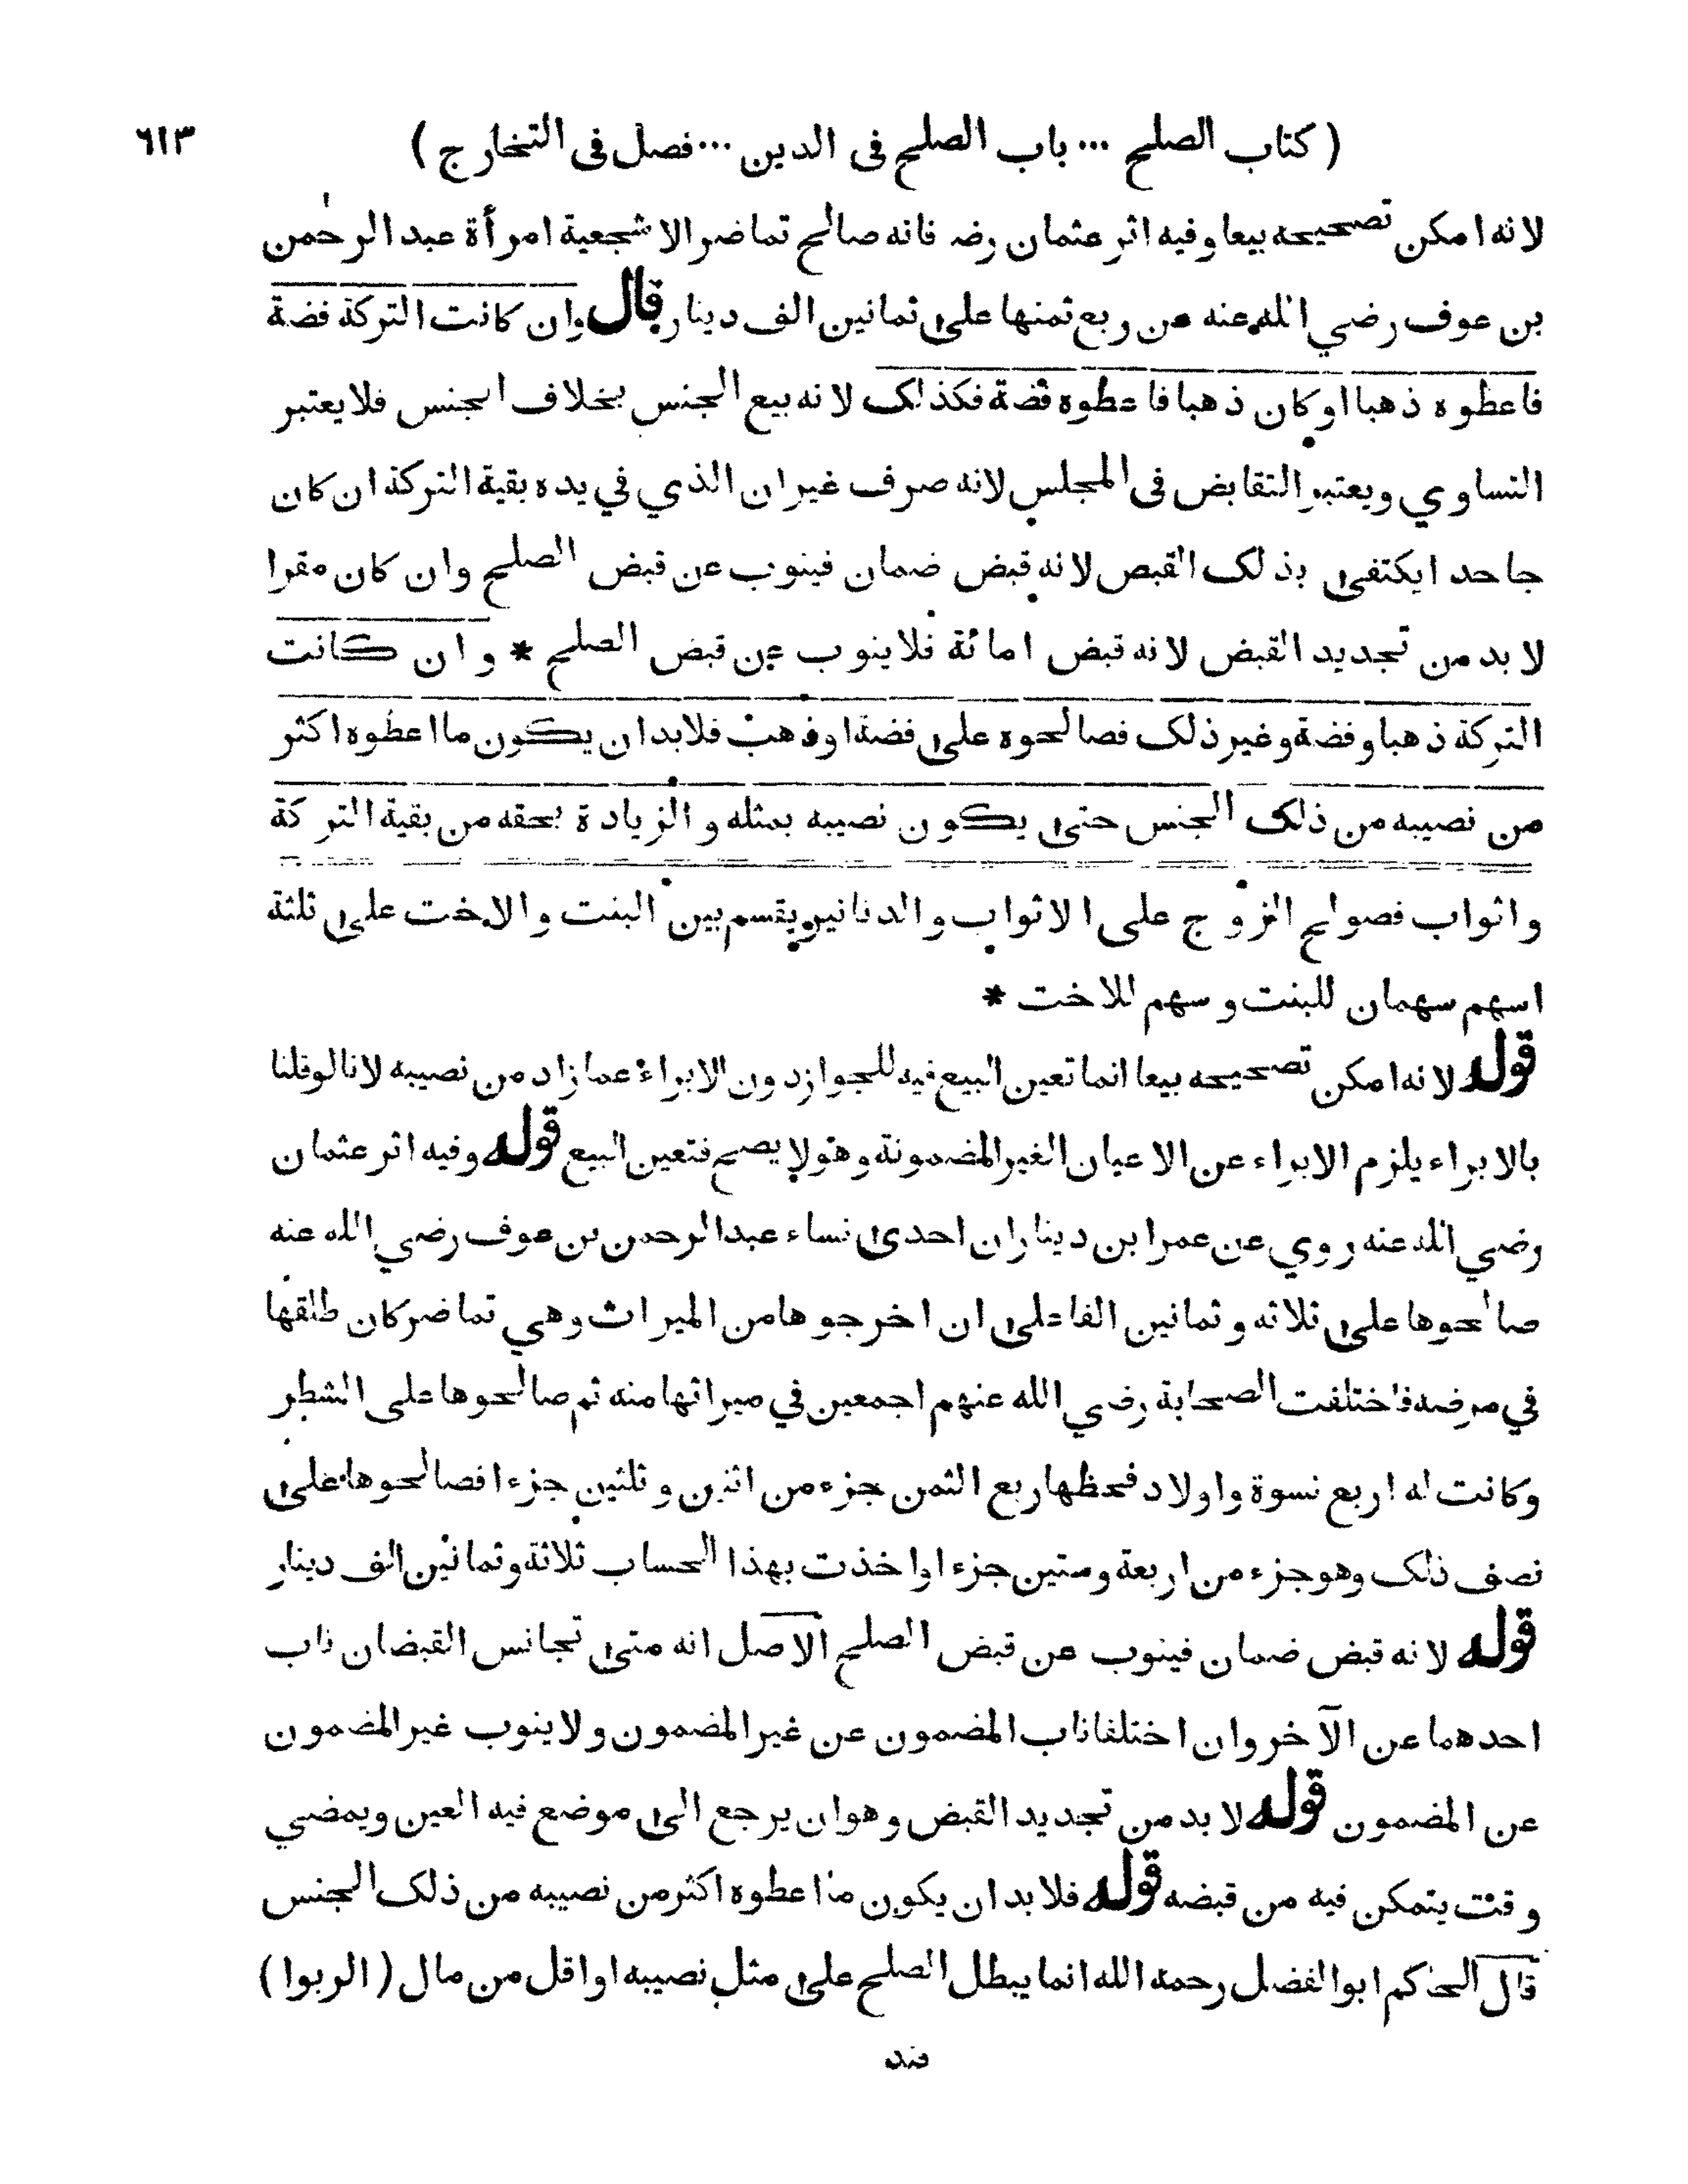 ( كتاب الصلح ... باب الصلح فى الدين ... فصل فى التخارج ) ٦١٣
لانه امكن تصحيحه بيعا وفيه اثر عثمان رضه فانه صالح تماضر الاشجعية امرأة عبد الرحمن
بن عوف رضي الله عنه عن ربع ثمنها على ثمانين الف دينار قال وان كانت التركة فضة
فاعطوه ذهبا او كان ذهبا فاعطوه فضة فكذلك لانه بيع الجنس بخلاف الجنس فلا يعتبر
التساوي ويعتبر التقابض فى المجلس لانه صرف غير ان الذي في يده بقية التركة ان كان
جاحدا يكتفى بذلك القبض لانه قبض ضمان فينوب عن قبض الصلح وان كان مقرا
لا بد من تجديد القبض لانه قبض امانة فلا ينوب عن قبض الصلح * وان كانت
التركة ذهبا وفضة وغير ذلك فصالحوه على فضة او ذهب فلابد ان يكون ما اعطوه اكثر
من نصيبه من ذلك الجنس حتى يكون نصيبه بمثله والزيادة بحقه من بقية التركة
واثواب فصولح الزوج على الاثواب والدنانير يقسم بين البنت والاخت على ثلثة
اسهم سهمان للبنت وسهم للاخت *
قوله لانه امكن تصحيحه بيعا انما تعين البيع فيه للجواز دون الابراء عما زاد من نصيبه لانا لو قلنا
بالابراء يلزم الابراء عن الاعيان الغير المضمونة وهو لا يصح فتعين البيع قوله وفيه اثر عثمان
رضي الله عنه روي عن عمرا بن دينار ان احدى نساء عبد الرحمن بن عوف رضي الله عنه
صالحوها على ثلاثه وثمانين الفا على ان اخرجوها من الميراث وهي تماضر كان طلقها
في مرضه فاختلفت الصحابة رضي الله عنهم اجمعين في ميراثها منه ثم صالحوها على الشطر
وكانت له اربع نسوة واولاد فحظها ربع الثمن جزء من اثنين وثلثين جزءا فصالحوها على
نصف ذلك وهو جزء من اربعة وستين جزءا واخذت بهذا الحساب ثلاثة وثمانين الف دينار
قوله لانه قبض ضمان فينوب عن قبض الصلح الاصل انه متى تجانس القبضان ناب
احدهما عن الآخر وان اختلفا ناب المضمون عن غير المضمون ولا ينوب غير المضمون
عن المضمون قوله لا بد من تجديد القبض وهو ان يرجع الى موضع فيه العين ويمضي
وقت يتمكن فيه من قبضه قوله فلا بد ان يكون ما اعطوه اكثر من نصيبه من ذلك الجنس
قال الحاكم ابو الفضل رحمه الله انما يبطل الصلح على مثل نصيبه او اقل من مال ( الربوا )